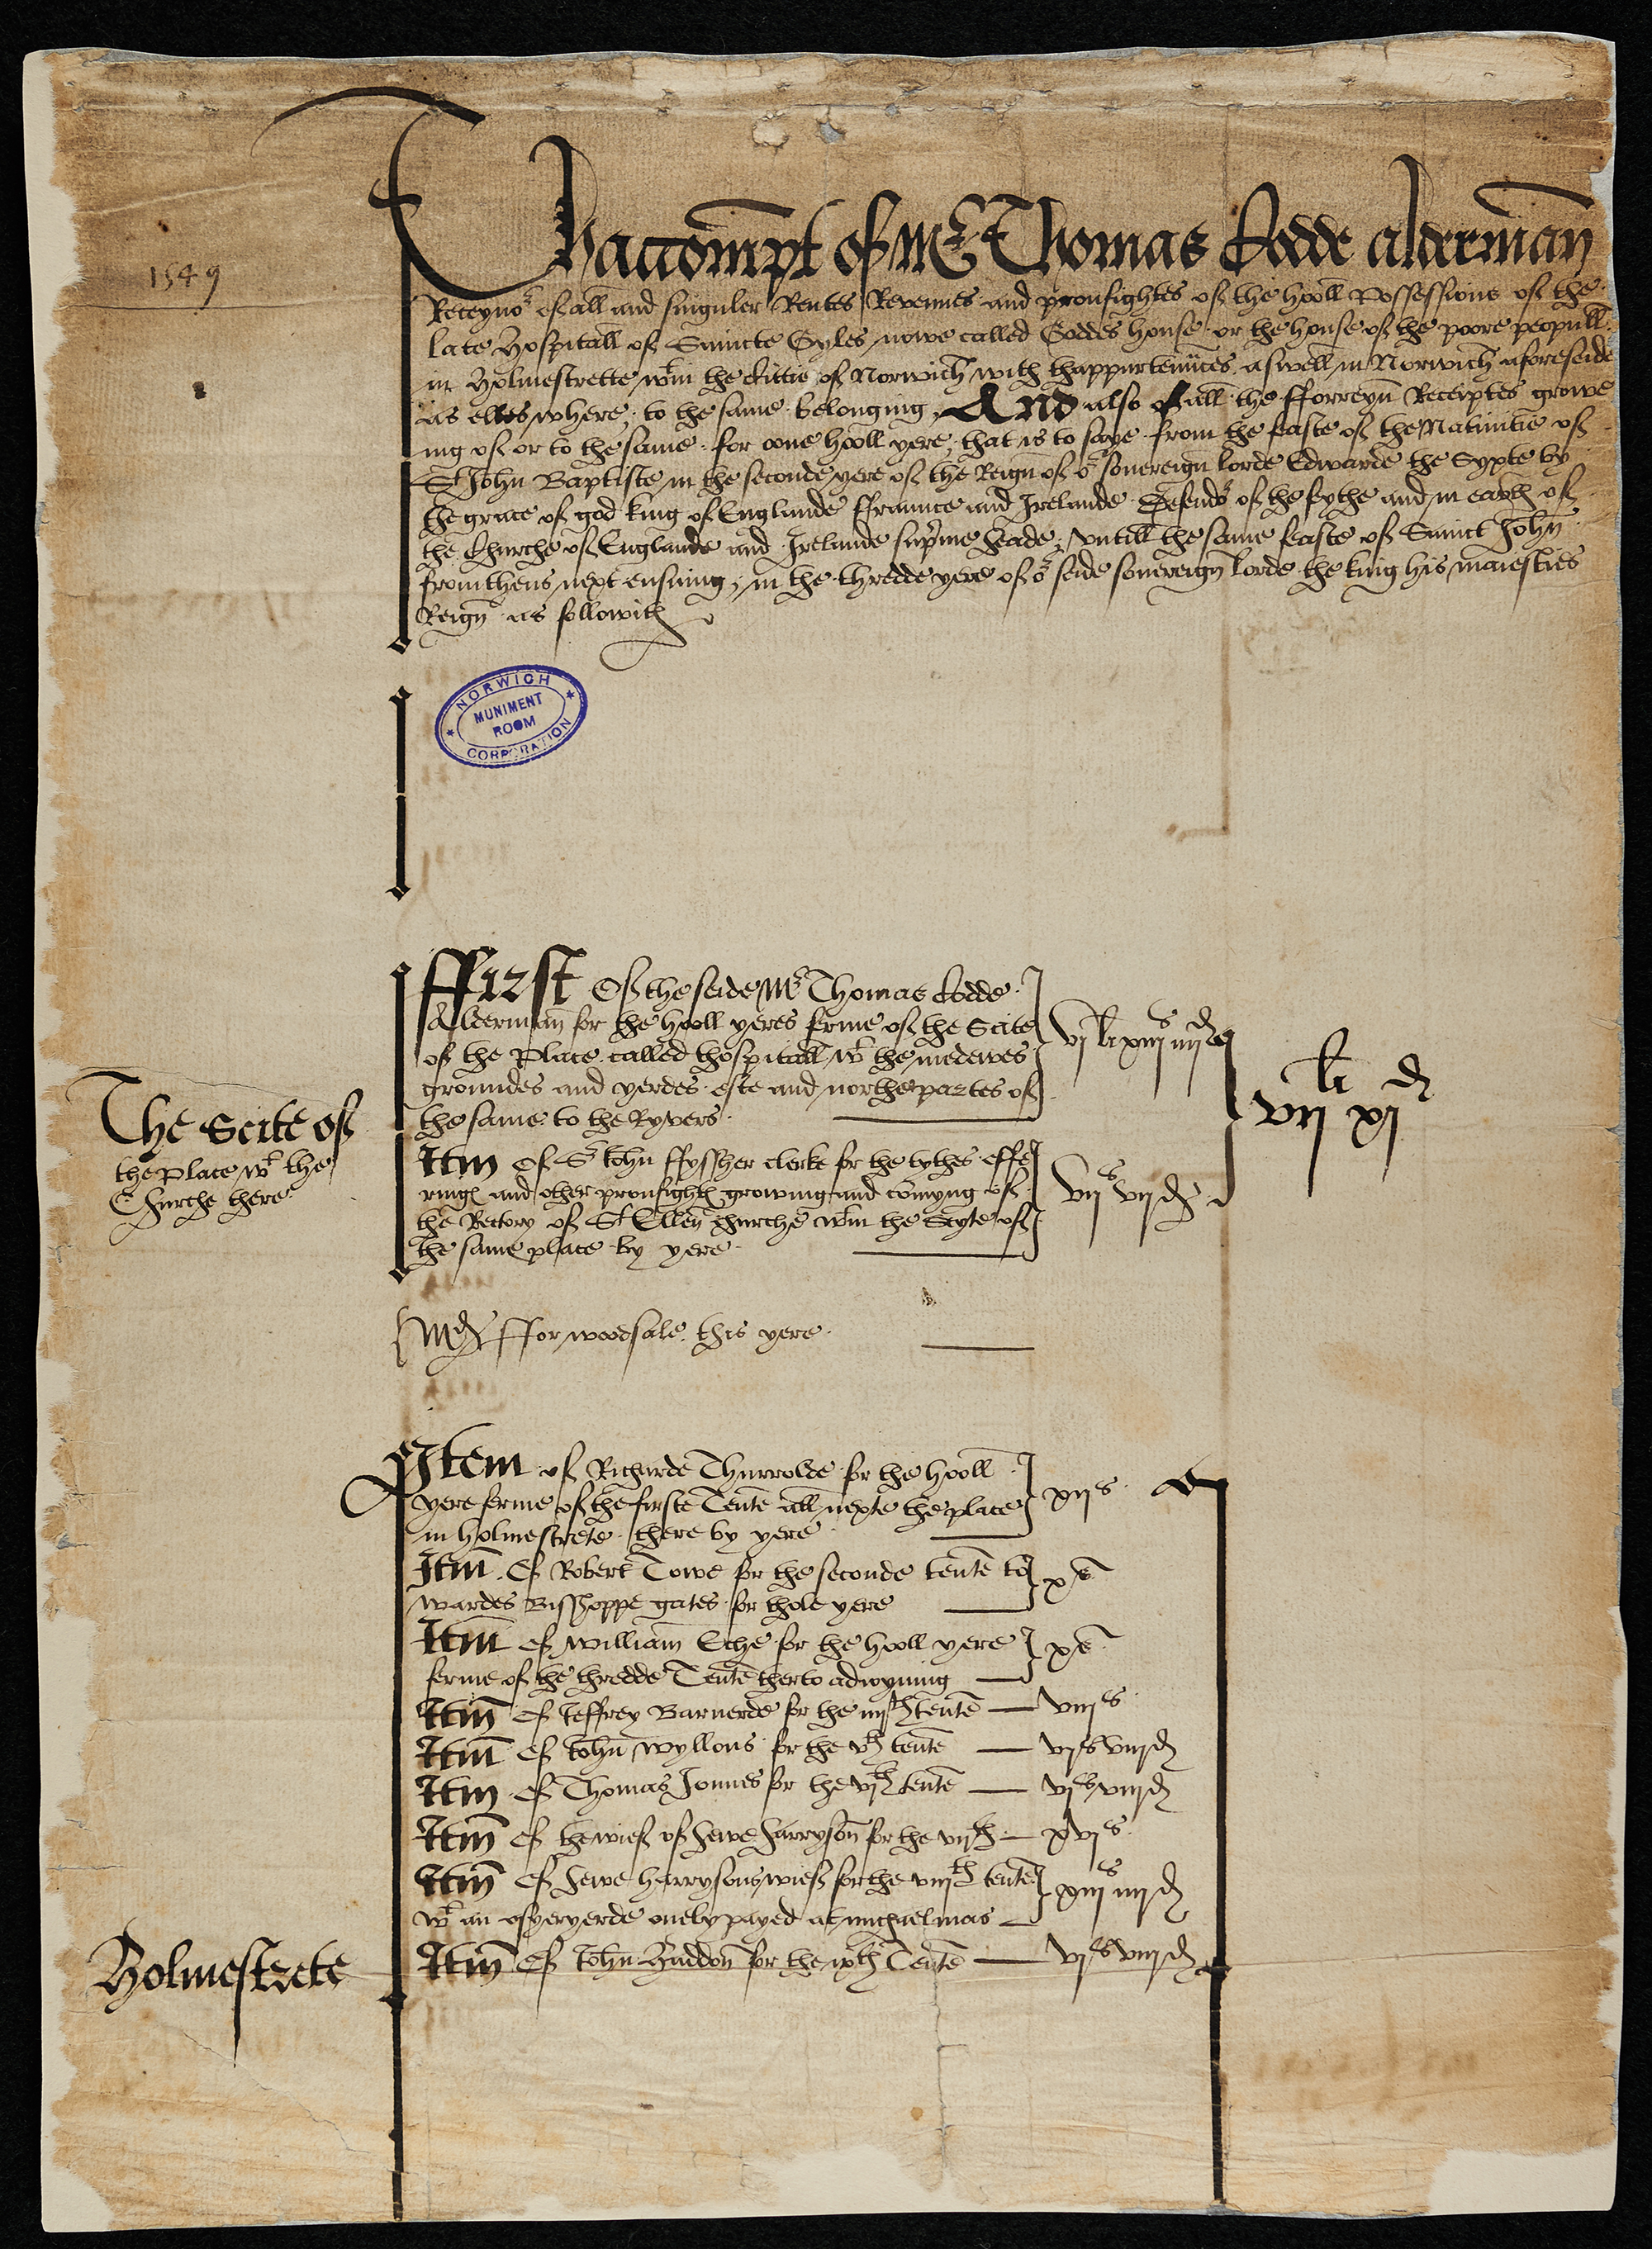 Thaccompt of Mr Thomas Codde alderman
1549
Receyvor of all and singuler Rentes Revenues and proufightes of the hooll Possessions of the
late Hospitall of Saincte Gyles nowe called Goddes house or the house of the poore peopull
in Holmestrette wtin the Cittie of Norwich with thappurtenances aswell in Norwich aforeseide
as elles where, to the same belonging, And also of all the fforreyn Receiptes growe
ing of or to the same for oone hooll yere, that is to saye from the feaste of the Nativitie of
St John Baptiste in the seconde yere of the Reign of or sovereign lorde Edwarde the Syxte by
the grace of god king of Englande ffraunce and Irelande Defendor of the feythe and in earth of
the Churche of Englande and Irelande supreme heade, untill the same feaste of Sainct John
from thens next ensuing, in the thredde yere of or seide sovereign lorde the king his maiesties
Reign as followith
NORWICH
MUNIMENT
ROOM
CORPORATION
ffirst Of the seide Mr Thomas Codde
Alderman for the hooll yeres ferme of the Scite
of the Place called thospitall wt the medewes
groundes and yerdes este and northe partes of
the same to the Ryvers
vj li xiij s iiij d
The Scite of
the place wt the
Churche there
Itm Of Sr John ffyssher clerke for the tythes offe
ringes and other proufightes growing and comyng of
the Rectory of St Ellen churche wtin the Scyte of
the same place by yere
vij s vij d
vij li xj d
Md ffor woodsale this yere
Item of Richarde Thurrolde for the hooll
yere ferme of the firste Tente all nexte the place
in holmestrete there by yere
xij s
Itm Of Robert Towe for the seconde tente to
wardes Bisshoppe gates for thole yere
x s
Itm of William Eche for the hooll yere
ferme of the thredde Tente therto adioyning
x s
Itm Of Jeffrey Barnerde for the iiijth tente viij s
Itm Of John Wyllons for the vth tente vj s viij d
Itm Of Thomas Jonnes for the vjth tente vj s viij d
Itm Of the wief of Hewe Harryson for the vijth xvj s
Itm Of Hewe Harrysons wief for the viijth tente
wt an osyeryerde onely payed at michaelmas
xiij s iiij d
Holmestrete
Itm Of John Haddon for the ixth Tente vj s viij d